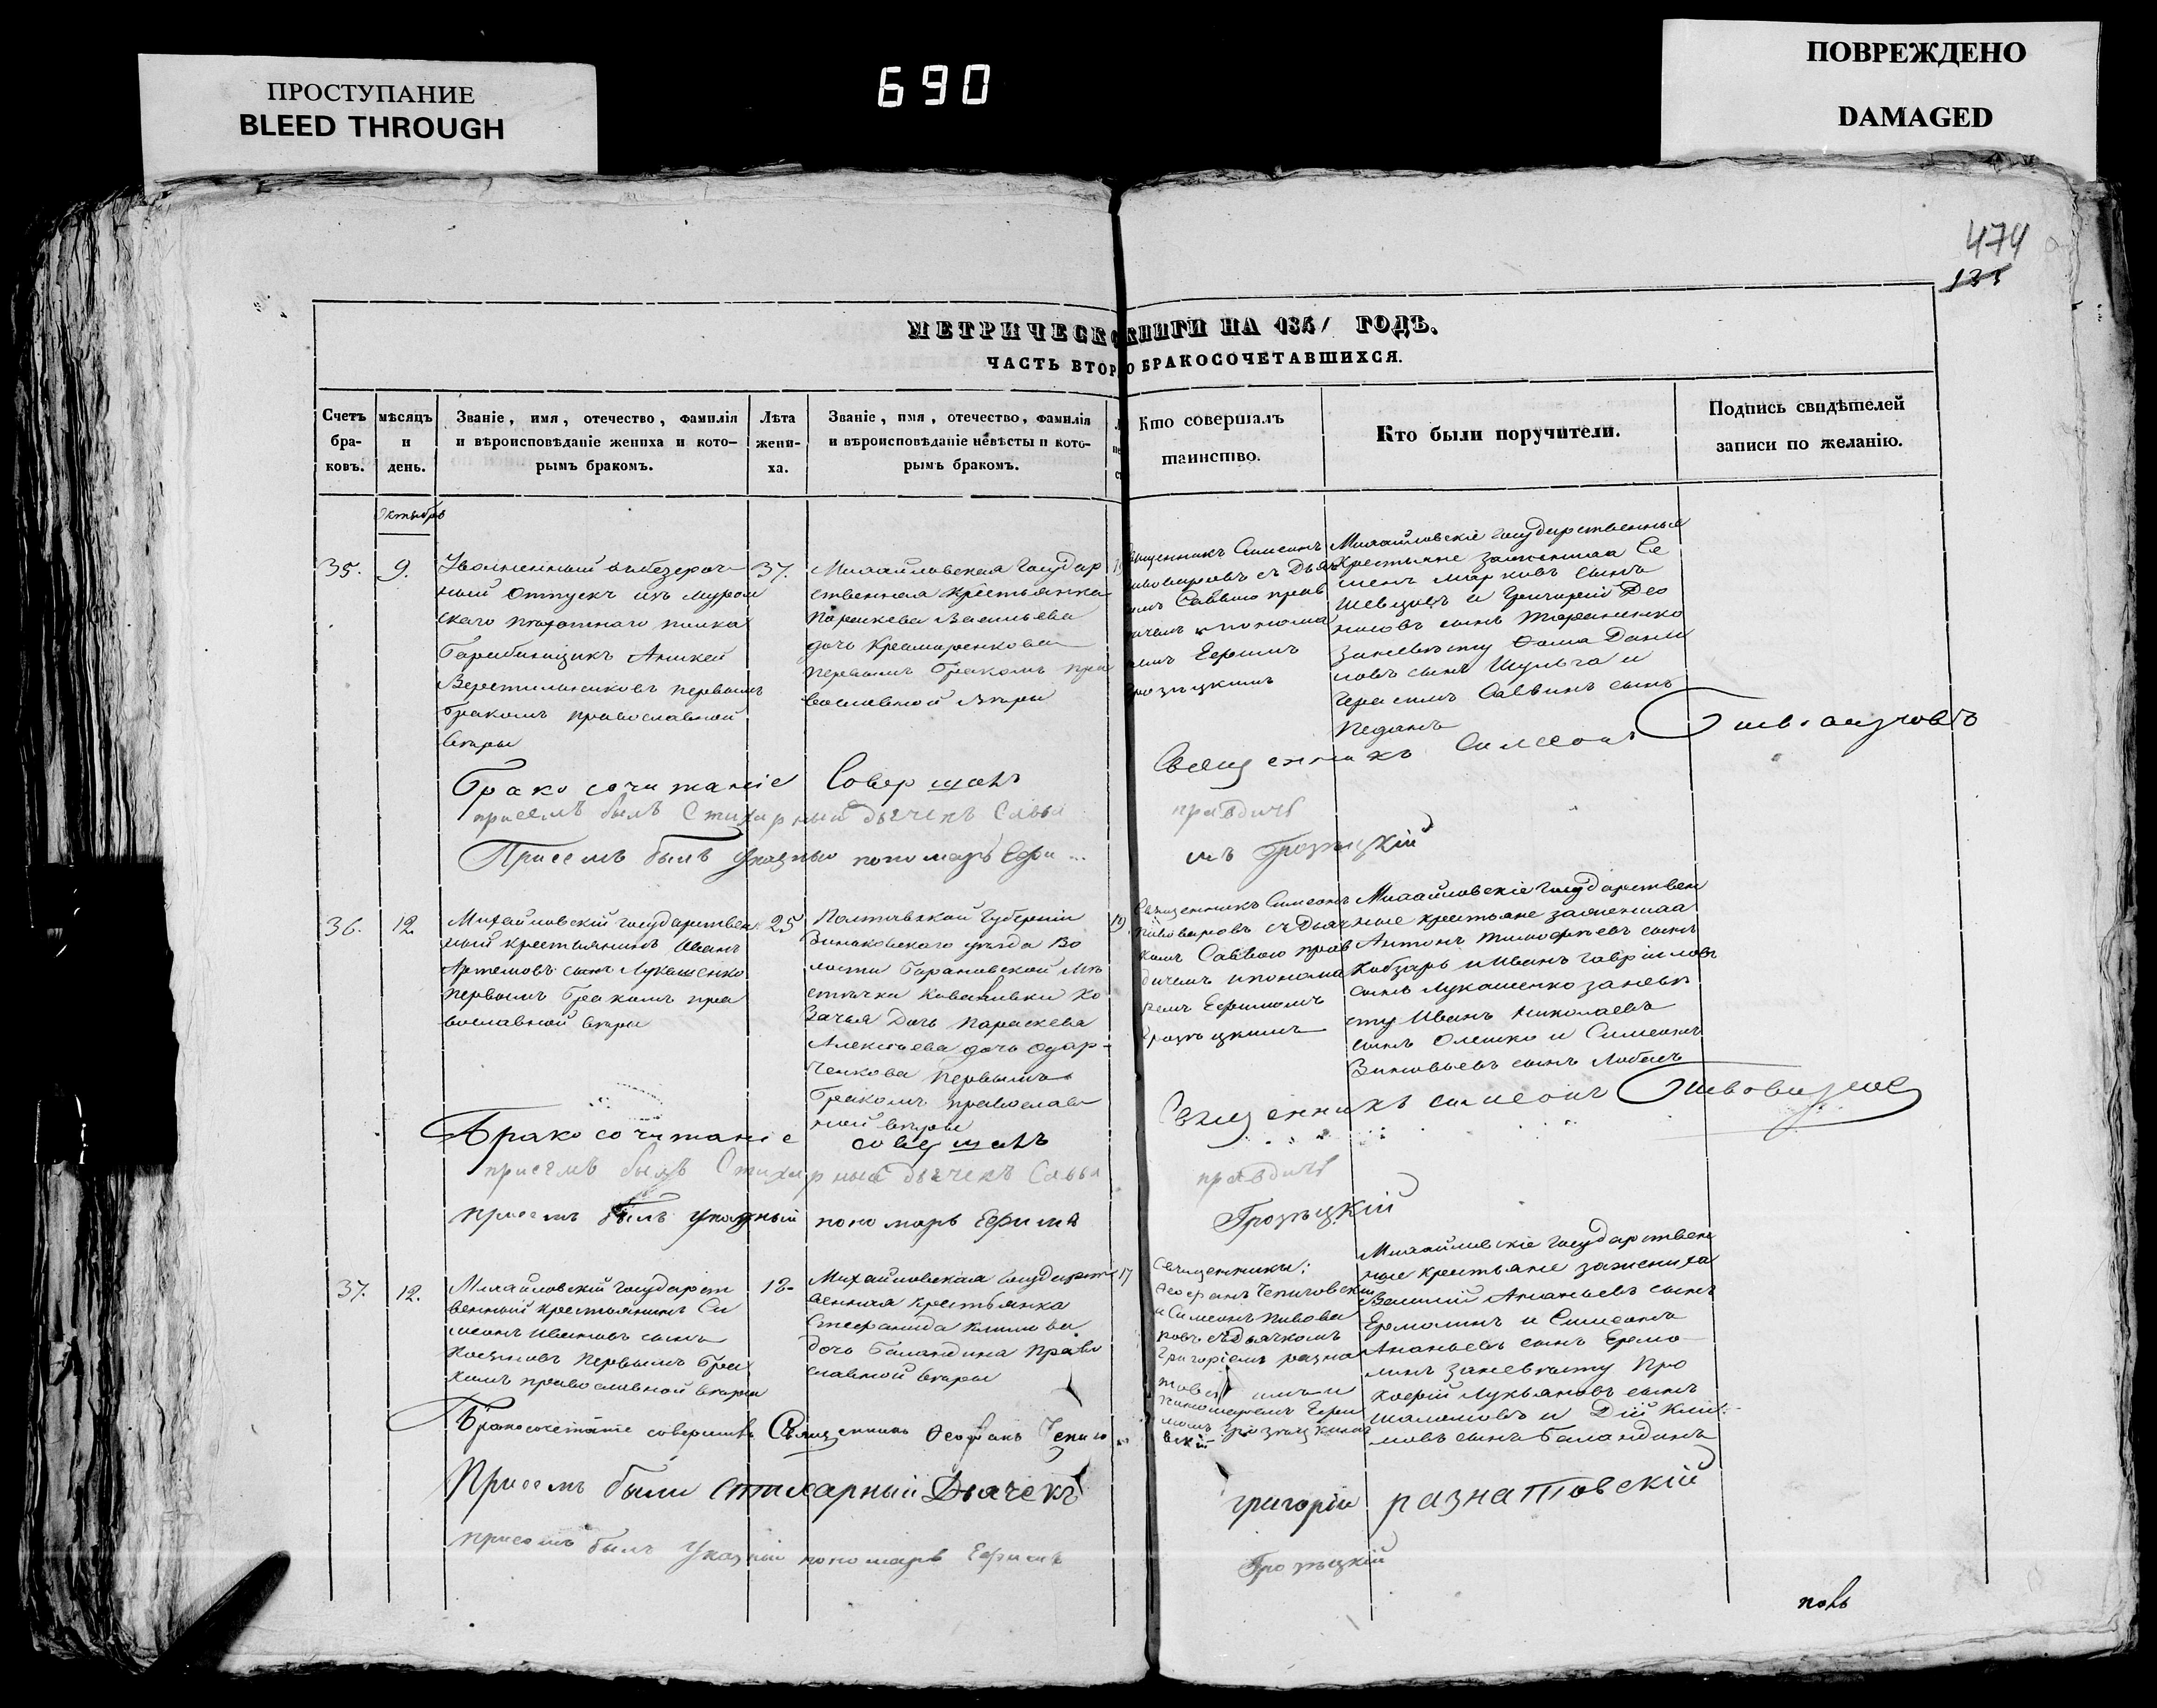 ПРОСТУПАНИЕ
BLEED THROUGH
690
ПОВРЕЖДЕНО
DAMAGED
474
МЕТРИЧЕСКО КНИГИ НА 184 ГОДЪ.
ЧАСТЬ ВТОР О БРАКОСОЧЕТАВШИХСЯ.
Счетъ бра-ковъ.
мѣсяцъ и день.
Званіе, имя, отечество, фамилія
и вѣроисповѣданіе жениха и кото-
рымъ бракомъ.
Лѣта
жени-
ха.
Званіе, имя, отечество, фамилія
и вѣроисповѣданіе невѣсты и кото-
рымъ бракомъ.
Кто совершалъ
таинство.
Кто были поручители.
Подпись свидѣтелей
записи по желанію.
Октября
35.
9.
Уволенный въ безсроч
ный отпускъ изъ Муром
скаго пѣхотнаго полка
Барабанщикъ Аникей
Веретильниковъ первымъ
бракомъ православной
вѣры
37.
Михайловская государ
ственная крестьянка
Параскева Васильева
дочь Крамаренкова
первымъ бракомъ пра
вославной вѣры
Священникъ Симеонъ
Пивоваровъ съ Дьяч
комъ Саввою прав
дичемъ и понома
ремъ Ефимомъ
Грозицкимъ
Михайловскіе государственные
крестьяне зажениха Се
менъ Марковъ сынъ
Шевцовъ и Григорій Део
нисовъ сынъ Тараненко
заневѣсту Фома Дани
ловъ сынъ Шульга и
Герасимъ Саввинъ сынъ
Педанъ
Брако сочитаніе Совер шалъ Священникъ Симеонъ Пивоваровъ
присемъ былъ Стихарный дьячекъ Савва правдичъ
Присемъ былъ Указный пономарь Ефимъ Грозицкій
36.
12.
Михайловскій государствен
ный крестьянинъ Иванъ
Артемовъ сынъ Лукашенко
первымъ бракомъ пра
вославной вѣры
25
Полтавской губерніи
Зинковскаго уѣзда Во
лости Барановской Мѣ
стечка Ковалевки Ко
зачья Дочь Параскева
Алексѣева дочь Одар-
ченкова первымъ
бракомъ православ
ной вѣры
19
Священникъ Симеонъ
Пивоваровъ съ Дьяч
комъ Саввою прав
дичемъ и понома
ремъ Ефимомъ
Грозицкимъ
Михайловскіе государствен
ные крестьяне зажениха
Антонъ Тимофѣевъ сынъ
Кобзарь и Иванъ Гавриловъ
сынъ Лукашенко заневѣ
сту Иванъ Николаевъ
сынъ Олешко и Симеонъ
Зиновьевъ сынъ Лобасъ
Брако сочитаніе совер шалъ Священникъ симеонъ Пивоваровъ
присемъ былъ Стихарный дьячекъ Савва правдичъ
присемъ былъ указный пономарь Ефимъ Грозицкій
37.
12.
Михайловскій государст
венный крестьянинъ Си
меонъ Ивановъ сынъ
Косяковъ первымъ бра
комъ православной вѣры
18
Михайловская государст
венная крестьянка
Стефанида Климова
дочь Баландина право
славной вѣры
17
Священники:
Феофанъ Чепиговскій
и Симеонъ Пивова
ровъ съ Дьячкомъ
Григоріемъ разна
товскимъ и
пономаремъ Ефи
момъ Грозицкимъ
Михайловскіе государствен
ные крестьяне зажениха
Василій Ананьевъ сынъ
Ермолинъ и Симеонъ
Ананьевъ сынъ Ермо
линъ заневѣсту Про
кофій Лукьяновъ сынъ
Шаламовъ и Дій Кли
мовъ сынъ Баландинъ
Бракосочетаніе совершилъ Священникъ Феофанъ Чепиговскій
Присемъ были стихарный Дьячекъ григорій разнаТовскій
присемъ былъ Указный пономарь Ефимъ Грозицкій